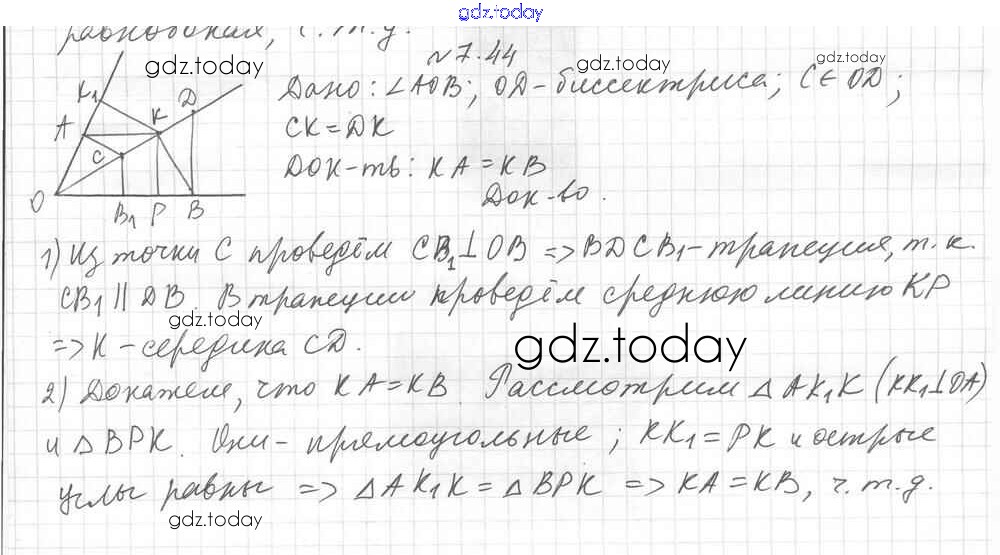 gdz.today
равнобокая, ч.т.д.
№7.44
gdz.today
gdz.today
gdz.today
Дано: ∠AOB; OD-биссектриса; C∈OD;
CK=DK
Док-ть: KA=KB
Док-во.
K₁
A
C
K
D
O
B₁ P B
1) Из точки C проведём CB₁⊥OB => BDCB₁-трапеция, т.к.
CB₁ || DB. В трапеции проведём среднюю линию KP
gdz.today
=> K-середина CD.
gdz.today
2) Докажем, что KA=KB. Рассмотрим △AK₁K (KK₁⊥OA)
и △BPK. Они-прямоугольные; KK₁=PK и острые
углы равны => △AK₁K=△BPK => KA=KB, ч.т.д.
gdz.today